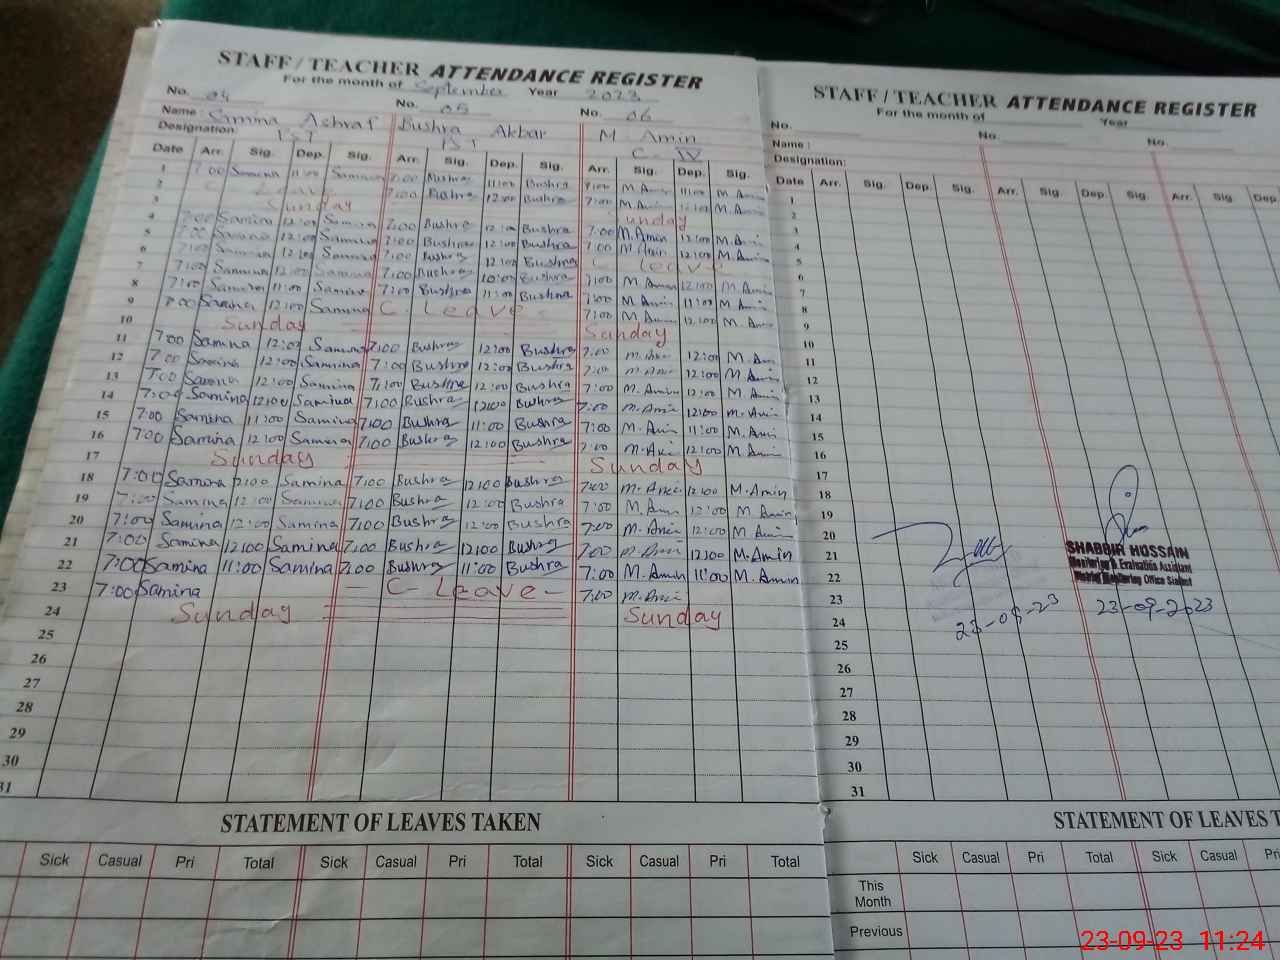 STAFF / TEACHER ATTENDANCE REGISTER
For the month of September Year 2023
No. 04 No. 05 No. 06
Name: Samina Ashraf Bushra Akbar M. Amin
Designation: C-IV
Date Arr. Sig. Dep. Sig. Arr. Sig. Dep. Sig. Arr. Sig. Dep. Sig.
1 7:00 Samina 11:00 Samina 7:00 Bushra 11:00 Bushra 7:00 M. Amin 11:00 M. Amin
2 C Leave 7:00 Bushra 12:00 Bushra 7:00 M. Amin M. Amin
3 Sunday Sunday
4 7:00 Samina 12:00 Samina 7:00 Bushra 12:00 Bushra 7:00 M. Amin 12:00 M. Amin
5 7:00 Samina 12:00 Samina 7:00 Bushra 12:00 Bushra 7:00 M. Amin 12:00 M. Amin
6 7:00 Samina 12:00 Samina 7:00 Bushra 12:00 Bushra C Leave
7 7:00 Samina 12:00 Samina 7:00 Bushra 10:00 Bushra 7:00 M. Amin 12:00 M. Amin
8 7:00 Samina 11:00 Samina 7:00 Bushra 11:00 Bushra 7:00 M. Amin 11:00 M. Amin
9 7:00 Samina 12:00 Samina C. Leave 7:00 M. Amin 12:00 M. Amin
10 Sunday Sunday
11 7:00 Samina 12:00 Samina 7:00 Bushra 12:00 Bushra 7:00 M. Amin 12:00 M. Amin
12 7:00 Samina 12:00 Samina 7:00 Bushra 12:00 Bushra 7:00 M. Amin 12:00 M. Amin
13 7:00 Samina 12:00 Samina 7:00 Bushra 12:00 Bushra 7:00 M. Amin 12:00 M. Amin
14 7:00 Samina 12:00 Samina 7:00 Bushra 12:00 Bushra 7:00 M. Amin 12:00 M. Amin
15 7:00 Samina 11:00 Samina 7:00 Bushra 11:00 Bushra 7:00 M. Amin 11:00 M. Amin
16 7:00 Samina 12:00 Samina 7:00 Bushra 12:00 Bushra 7:00 M. Amin 12:00 M. Amin
17 Sunday Sunday
18 7:00 Samina 12:00 Samina 7:00 Bushra 12:00 Bushra 7:00 M. Amin 12:00 M. Amin
19 7:00 Samina 12:00 Samina 7:00 Bushra 12:00 Bushra 7:00 M. Amin 12:00 M. Amin
20 7:00 Samina 12:00 Samina 7:00 Bushra 12:00 Bushra 7:00 M. Amin 12:00 M. Amin
21 7:00 Samina 12:00 Samina 7:00 Bushra 12:00 Bushra 7:00 M. Amin 12:00 M. Amin
22 7:00 Samina 11:00 Samina 7:00 Bushra 11:00 Bushra 7:00 M. Amin 11:00 M. Amin
23 7:00 Samina - C Leave - 7:00 M. Amin
24 Sunday Sunday
25
26
27
28
29
30
31
STATEMENT OF LEAVES TAKEN
Sick Casual Pri Total Sick Casual Pri Total Sick Casual Pri Total
STAFF / TEACHER ATTENDANCE REGISTER
For the month of Year
No. No. No.
Name :
Designation:
Date Arr. Sig. Dep. Sig. Arr. Sig. Dep. Sig. Arr. Sig. Dep.
1
2
3
4
5
6
7
8
9
10
11
12
13
14
15
16
17
18
19
20
21
22
23
24
25
26
27
28
29
30
31
SHABBIR HOSSAIN
Monitoring & Evaluation Assistant
Monitoring Office
23-09-23 23-09-2023
STATEMENT OF LEAVES T
Sick Casual Pri Total Sick Casual Pri
This
Month
Previous
23-09-23 11:24